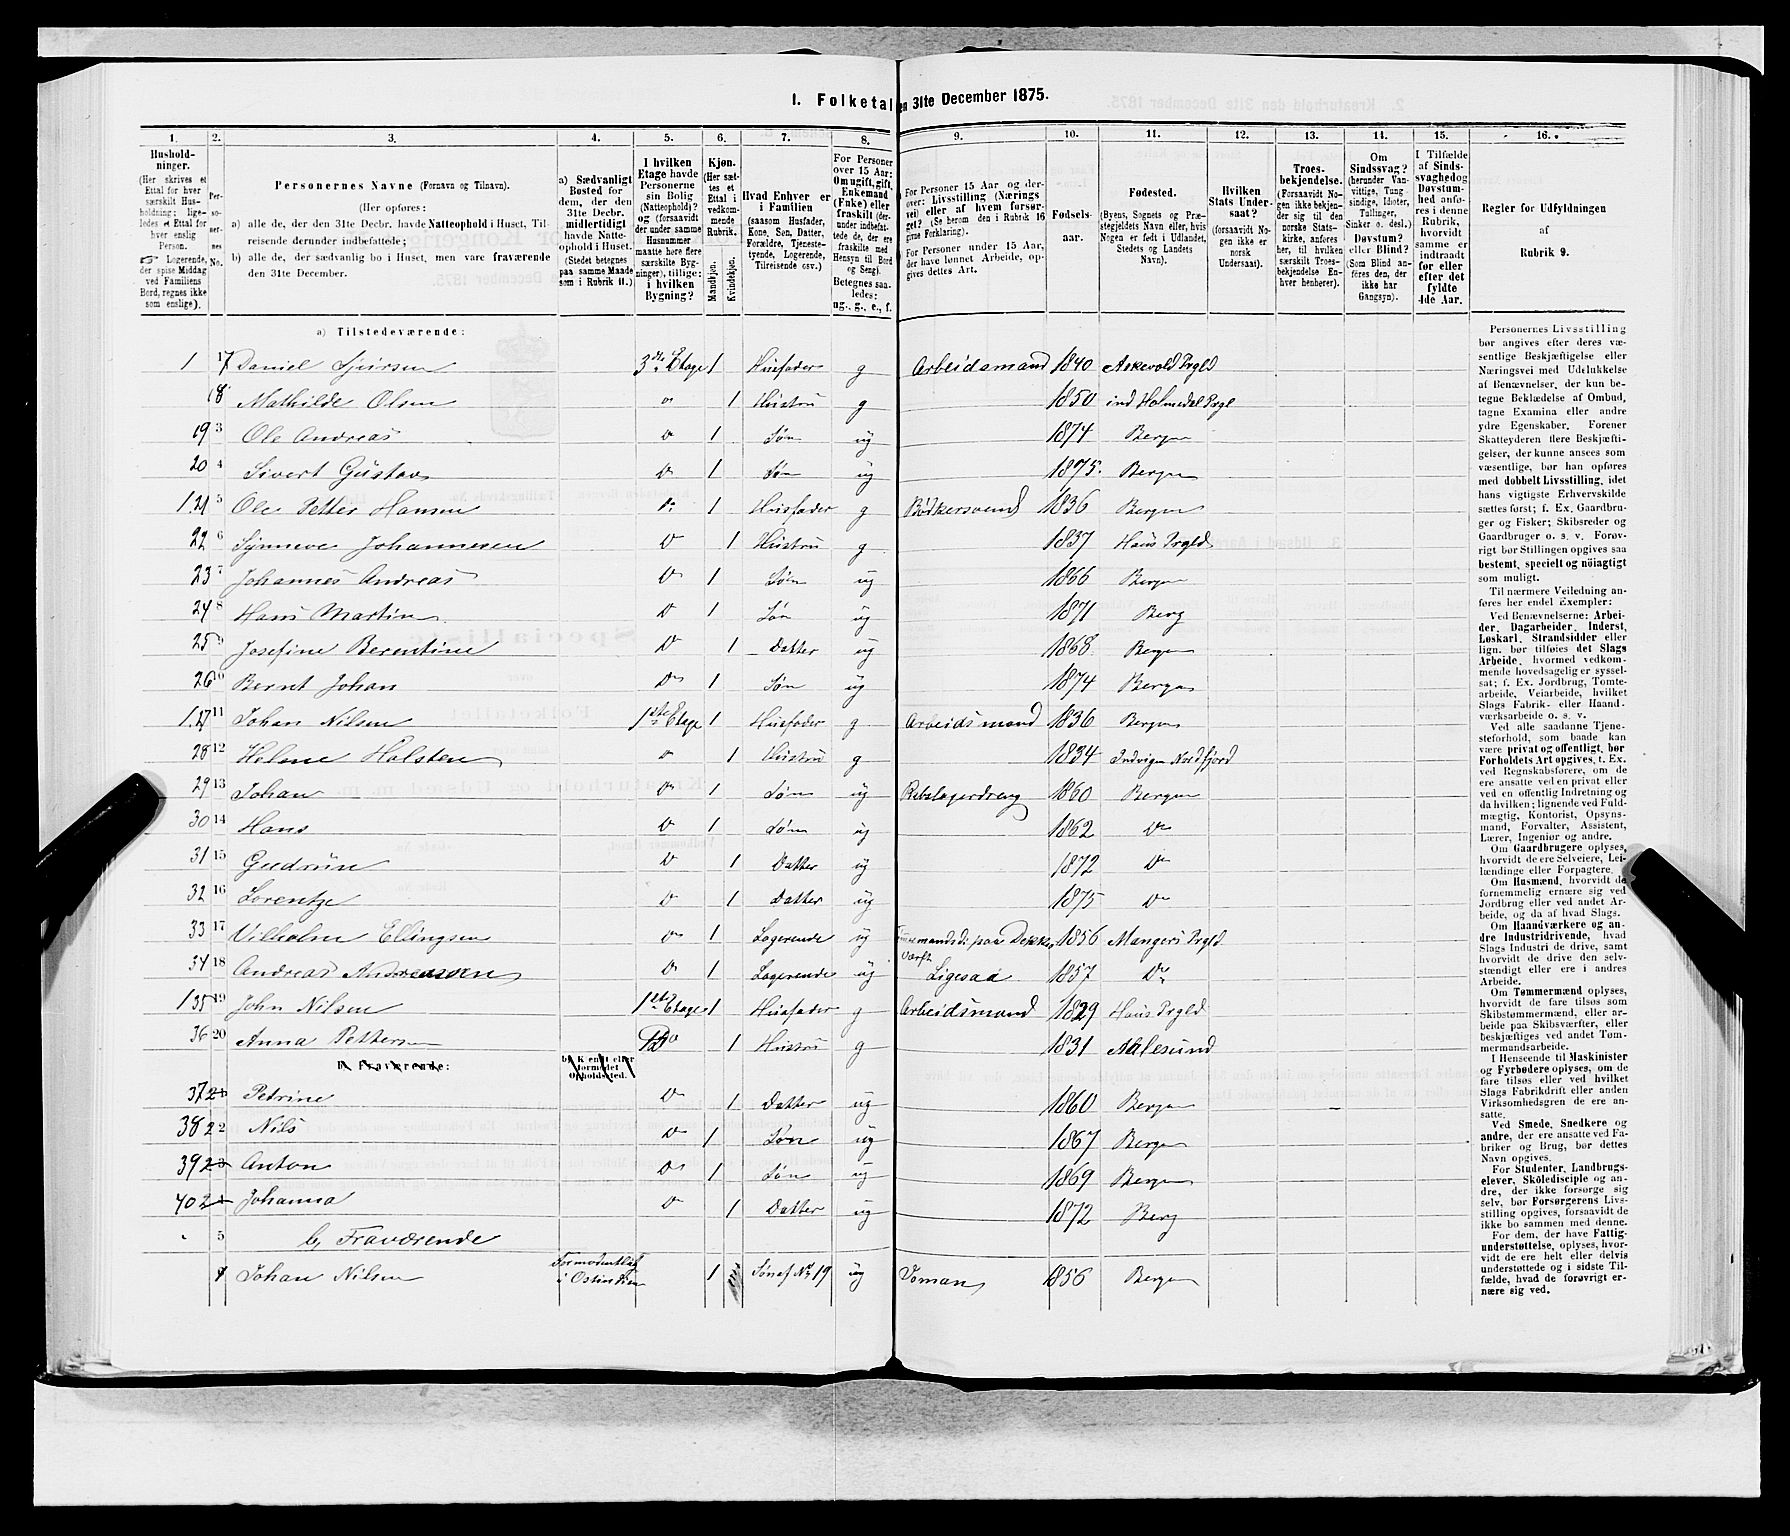 1. Folketal den 31te December 1875.
1. 2. 3. 4. 5. 6. 7. 8. 9. 10. 11. 12. 13. 14. 15. 16.
Husholdninger. (Her skrives et Ettal for hver særskilt Husholdning; ligeledes et Ettal for hver enslig Person. Logerende, der spise Middag ved Familiens Bord, regnes ikke som enslige).
Personernes No.
Personernes Navne (Fornavn og Tilnavn).
(Her opføres:
a) alle de, der den 31te Decbr. havde Natteophold i Huset, Tilreisende derunder indbefattede;
b) alle de, der sædvanlig bo i Huset, men vare fraværende den 31te December.
a) Sædvanligt Bosted for dem, der den 31te Decbr. midlertidigt havde Natteophold i Huset. (Stedet betegnes paa samme Maade som i Rubrik 11.)
I hvilken Etage havde Personerne sin Bolig (Natteophold)? og (forsaavidt der under samme Husnummer maatte høre flere særskilte Bygninger), tillige: i hvilken Bygning?
Kjøn. (Her sættes et Ettal i vedkommende Rubrik. Mandkjøn. Kvindekjøn.
Hvad Enhver er i Familien (saasom Husfader, Kone, Søn, Datter, Forældre, Tjenestetyende, Logerende, Tilreisende osv.)
For Personer over 15 Aar: Om ugift, gift, Enkemand (Enke) eller fraskilt (derunder indbefattede de, der ere fraskilte med Hensyn til Bord og Seng). Betegnes saaledes: ug., g., e., f.
For Personer 15 Aar og derover: Livsstilling (Næringsvei) eller af hvem forsørget? (Se herom den i Rubrik 16 givne Forklaring).
For Personer under 15 Aar, der have lønnet Arbeide, opgives dettes Art.
Fødselsaar.
Fødested. (Byens, Sognets og Præstegjeldets Navn eller, hvis Nogen er født i Udlandet, Stedets og Landets Navn).
Hvilken Stats Undersaat? (forsaavidt Nogen ikke er norsk Undersaat).
Troesbekjendelse. (Forsaavidt Nogen ikke bekjender sig til den norske Statskirke, anføres her, til hvilken særskilt Troesbekjendelse Enhver henhører).
Om Sindssvag? (herunder Vanvittige, Tungsindige, Idioter, Tullinger, Sinker o. desl.) Døvstum? eller Blind? (Som Blind anføres den, der ikke har Gangsyn).
I Tilfælde af Sindssvaghed og Døvstumhed anføres i denne Rubrik, hvorvidt samme er indtraadt før eller efter det fyldte 4de Aar.
Regler for Udfyldningen af Rubrik 9.
a) Tilstedeværende:
1 17 Daniel Sjursen 3die Etage 1 Husfader g Arbeidsmand 1840 Askevold Prgld
18 Mathilde Olsen Do 1 Hustru g 1850 ind Holmedal Prgl
19 3 Ole Andreas Do 1 Søn ug 1874 Bergen
20 4 Sivert Gustav Do 1 Søn ug 1875. Bergen
1. 21 5 Ole Petter Hansen Do 1 Husfader g Bødkersvend 1836 Bergen
22 6 Synneve Johannesen Do 1 Hustru g 1837 Haus Prgld
23 7 Johannes Andreas Do 1 Søn ug 1866 Bergen
24 8 Hans Martin Do 1 Søn ug 1871 Berg
25 9 Josefine Berentine Do 1 Datter ug 1868 Bergen
26 10 Bernt Johan Do 1 Søn ug 1874 Bergen
1. 27 11 Johan Nilsen 1ste Etage 1 Husfader g Arbeidsmand 1836 Bergen
28 12 Helene Holsten Do 1 Hustru g 1834 Indvigen Nordfjord
29 13 Johan Do 1 Søn ug Rebslagerdreng 1860 Bergen
30 14 Hans Do 1 Søn ug 1862 Do
31 15 Gudrun Do 1 Datter ug 1872 Do
32 16 Lorentze Do 1 Datter ug 1875 Do
33 17 Vilhelm Ellingsen Do 1 Logerende ug Tømmermandsdr paa Dokkens Værft 1856 Mangers Prgld
34 18 Andreas Andreassen Do 1 Logerende ug Ligesaa 1857 Do
1 35 19 John Nilsen 1ste Etage 1 Husfader g Arbeidsmand 1829 Haus Prgld
36 20 Anna Pettersen Do 1 Hustru g 1831 Aalesund
b) Fraværende: b) Kendt eller formodet Opholdssted.
37 21 Petrine Do 1 Datter ug 1860 Bergen
38 22 Nils Do 1 Søn ug 1867 Bergen
39 23 Anton Do 1 Søn ug 1869 Bergen
40 24 Johanna Do 1 Datter ug 1872 Berg
5 b, Fraværende
1 Johan Nilsen Formodentlig i Ostindien 1 Søn af No 19 ug Tømand 1856 Bergen
Personernes Livsstilling bør angives efter deres væsentlige Beskjæftigelse eller Næringsvei med Udelukkelse af Benævnelser, der kun betegne Beklædelse af Ombud, tagne Examina eller andre ydre Egenskaber. Forener Skatteyderen flere Beskjæftigelser, der kunne ansees som væsentlige, bør han opføres med dobbelt Livsstilling, idet hans vigtigste Erhvervskilde sættes først; f. Ex. Gaardbruger og Fisker; Skibsreder og Gaardbruger o. s. v. Forøvrigt bør Stillingen opgives saa bestemt, specielt og nöiagtigt som muligt.
Til nærmere Veiledning anføres her endel Exempler:
Ved Benævnelserne: Arbeider, Dagarbeider, Inderst, Løskarl, Strandsidder eller lign. bør tilføies det Slags Arbeide, hvormed vedkommende hovedsagelig er sysselsat; f. Ex. Jordbrug, Tomtearbeide, Veiarbeide, hvilket Slags Fabrik- eller Haandværksarbeide o. s. v.
Ved alle saadanne Tjenesteforhold, som baade kan være privat og offentligt, bør Forholdets Art opgives, t. Ex. ved Regnskabsførere, om de ere ansatte ved en privat eller ved en offentlig Indretning og da hvilken; lignende ved Fuldmægtig, Kontorist, Opsynsmand, Forvalter, Assistent, Lærer, Ingeniør og andre.
Om Gaardbrugere oplyses, hvorvidt de ere Selveiere, Leilændinge eller Forpagtere.
Om Husmænd, hvorvidt de fornemmelig ernære sig ved Jordbrug eller ved andet Arbeide, og da af hvad Slags.
Om Haandværkere og andre Industridrivende, hvad Slags Industri de drive, samt hvorvidt de drive den selvstændigt eller ere i andres Arbeide.
Om Tømmermænd oplyses, hvorvidt de fare tilsøs som Skibstømmermænd, eller arbeide paa Skibsværfter, eller beskjæftiges ved andet Tømmermandsarbeide.
I Henseende til Maskinister og Fyrbødere oplyses, om de fare tilsøs eller ved hvilket Slags Fabrikdrift eller anden Virksomhedsgren de ere ansatte.
Ved Smede, Snedkere og andre, der ere ansatte ved Fabriker og Brug, bør dettes Navn opgives.
For Studenter, Landbrugselever, Skoledisciple og andre, der ikke forsørge sig selv, bør Forsørgerens Livsstilling opgives, forsaavidt de ikke bo sammen med denne.
For dem, der have Fattigunderstøttelse, oplyses, hvorvidt de ere helt eller delvis understøttede og i sidste Tilfælde, hvad de forøvrigt ernære sig ved.